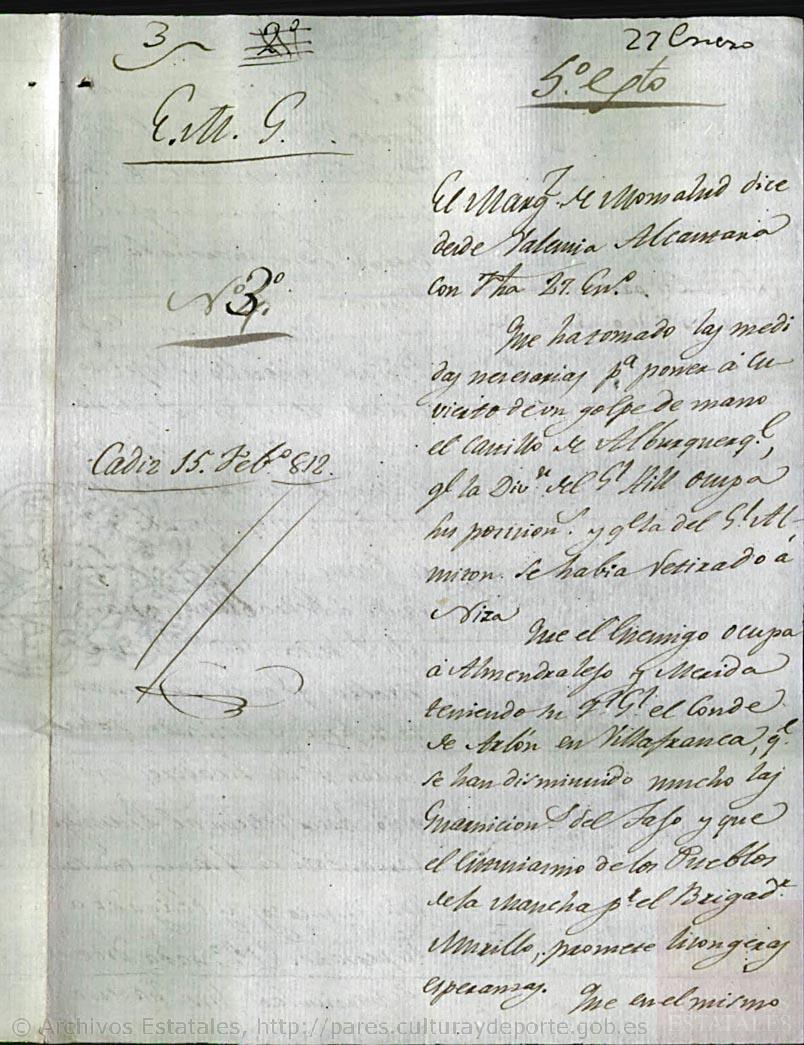 3 2º
E. M. G.
Nº 3º
Cadiz 15. Febº 812.
27 Enero
5º. egto
El Marqs. de Monsalud dice
desde Valencia Alcantara
con fha 27. Enº.
Que ha tomado las medi
das necesarias pª poner á cu
vierto de un golpe de mano
el Castillo de Alburquerqe,
qe la Divon del Gl Hill ocupa
sus posicions. y qe la del Gl Al-
mison se habia retirado á
Niza
Que el Enemigo ocupa
á Almendralejo y Merida
teniendo su Cl Gl el Conde
de Arlón en Villafranca, qe
se han disminuido mucho las
Guarnicions del Tajo y que
el Entusiasmo de los Pueblos
de la Mancha pr el Brigadr
Murillo, promete lisongeras
esperanzas.
Que en el mismo
© Archivos Estatales, http://pares.culturaydeporte.gob.es